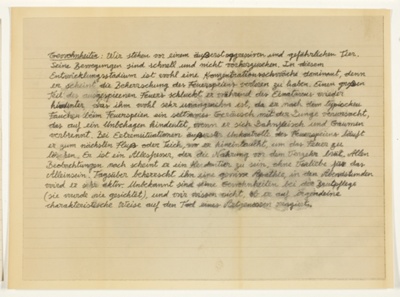 Gewohnheiten: Wir stehen vor einem äußerst aggressiven und gefährlichen Tier.
Seine Bewegungen sind schnell und nicht vorhersehbar. In diesem
Entwicklungsstadium ist wohl eine Konzentrationsschwäche dominant, denn
er scheint die Beherrschung des Feuerspeiens verloren zu haben. Einen großen
Teil des ausgespieenen Feuers schluckt er während des Einatmens wieder
hinunter, was ihm wohl sehr unangenehm ist, da er nach dem typischen
Fauchen beim Feuerspeien ein seltsames Geräusch mit der Zunge verursacht,
das auf ein Unbehagen hindeutet, wenn er sich Zahnfleisch und Gaumen
verbrennt. Bei Extremsituationen äußerster Unkontrolle des Feuerspeiens läuft
er zum nächsten Fluss oder Teich, wo er hineintaucht, um das Feuer zu
löschen. Er ist ein Allesfresser, der die Nahrung vor dem Verzehr brät. Allen
Beobachtungen nach scheint er ein zu sein, ohne für das
Alleinsein. Tagsüber beherrscht ihn eine gewisse Apathie, in den Abendstunden
wird er sehr aktiv. Unbekannt sind seine Gewohnheiten bei der Brutpflege
(sie wurde nie gesichtet), und wir wissen nicht, ob er auf irgendeine
charakteristische Weise auf den Tod eines Artgenossen reagiert.